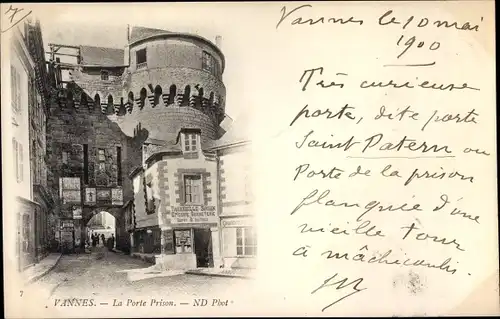 Vannes le 10 mai
1900
Très curieuse
porte, dite porte
Saint Patern ou
Porte de la prison
flanquée d'une
vieille tour
à mâchicoulis
7
VANNES. — La Porte Prison. — ND Phot